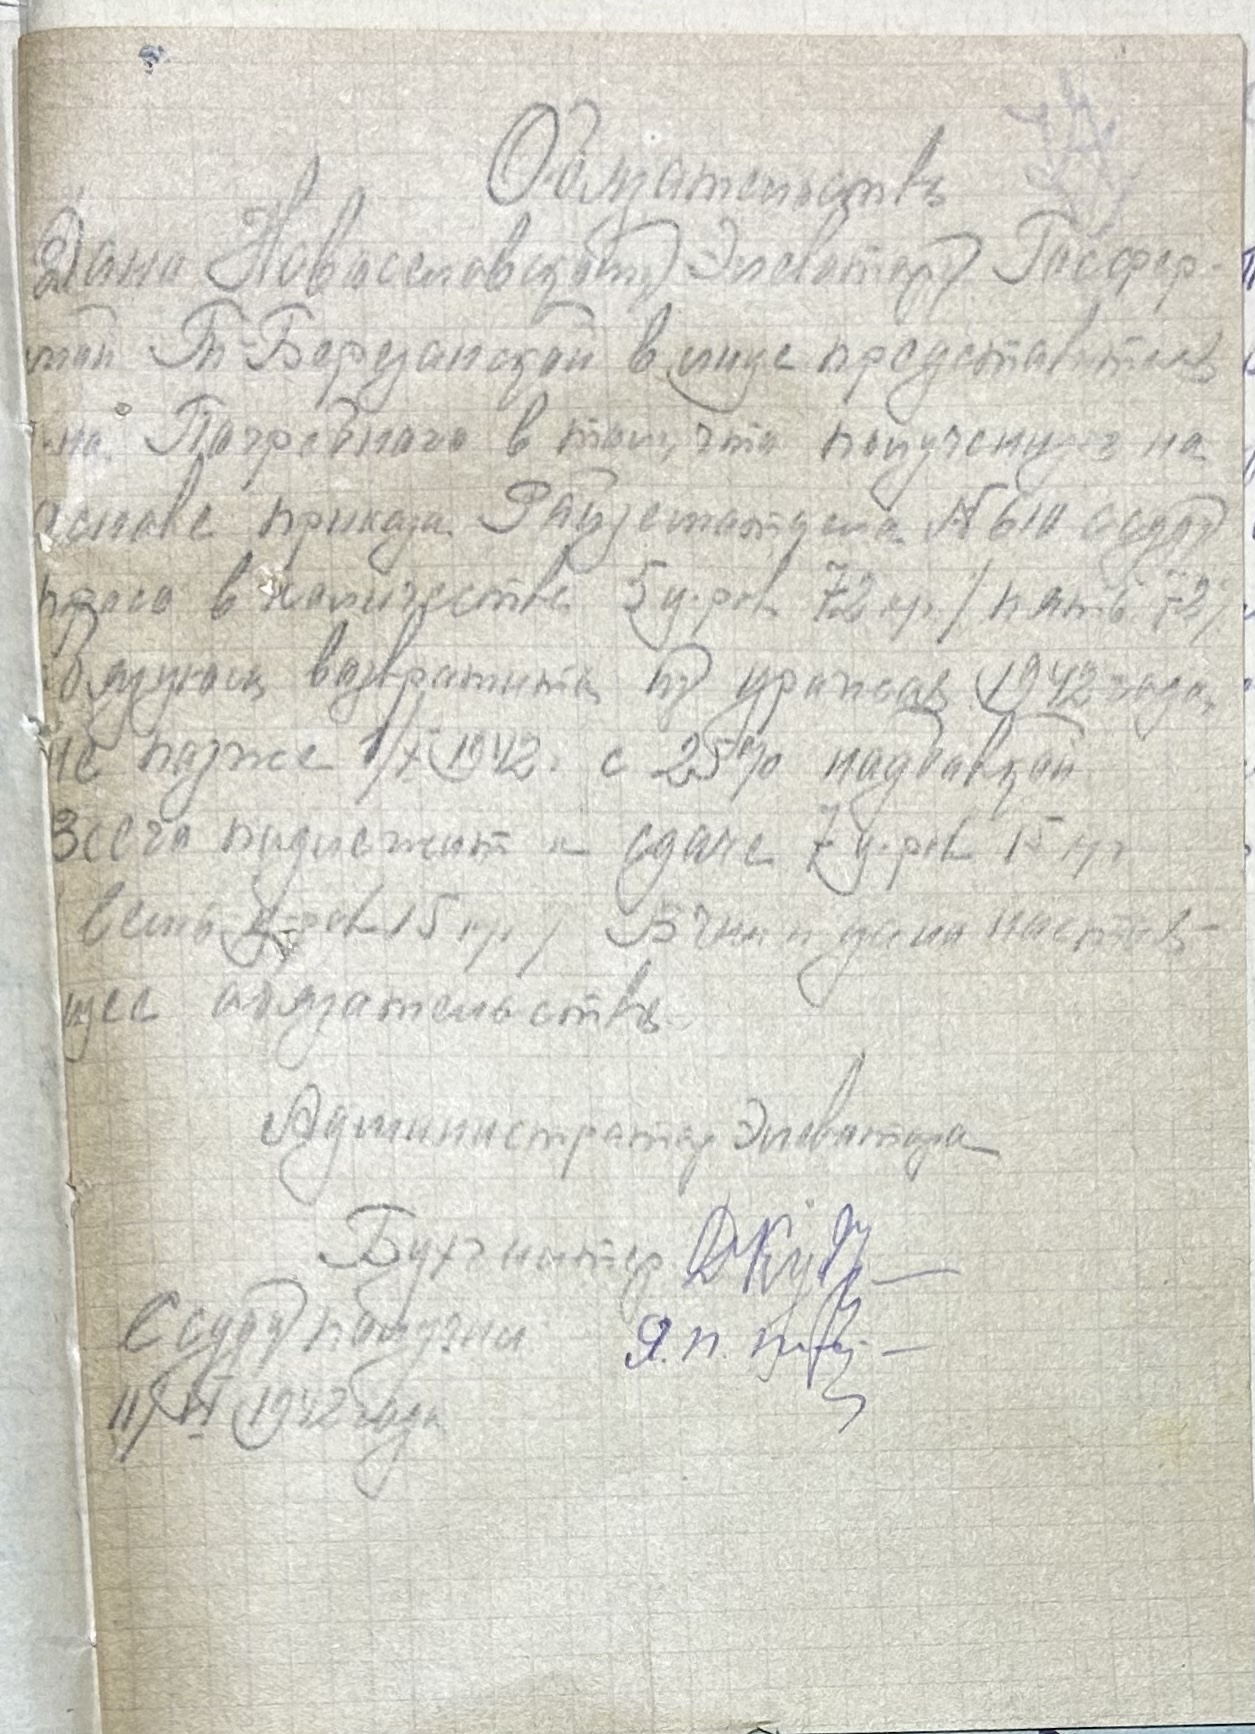 Обязательство
Дано Новоселовскому Элеватору Госфер-
мой Т-Борузанской в лице представителя
Погребного в том, что полученную на
основе приказа №610 ссуду
проса в количестве 5 ц-ров 72 кг. /пять 72
обязуюсь возвратить из урожая 1942 года,
не позже 1/X 1942 г. с 25% надбавкой
Всего подлежит к сдаче 7 ц-ров 15 кг
семь ц-ров 15 кг / В чем и дано настоя-
щее обязательство.
Администратор Элеватора
Бухгалтер
Ссуду получил Я. П.
11/VI 1942 года